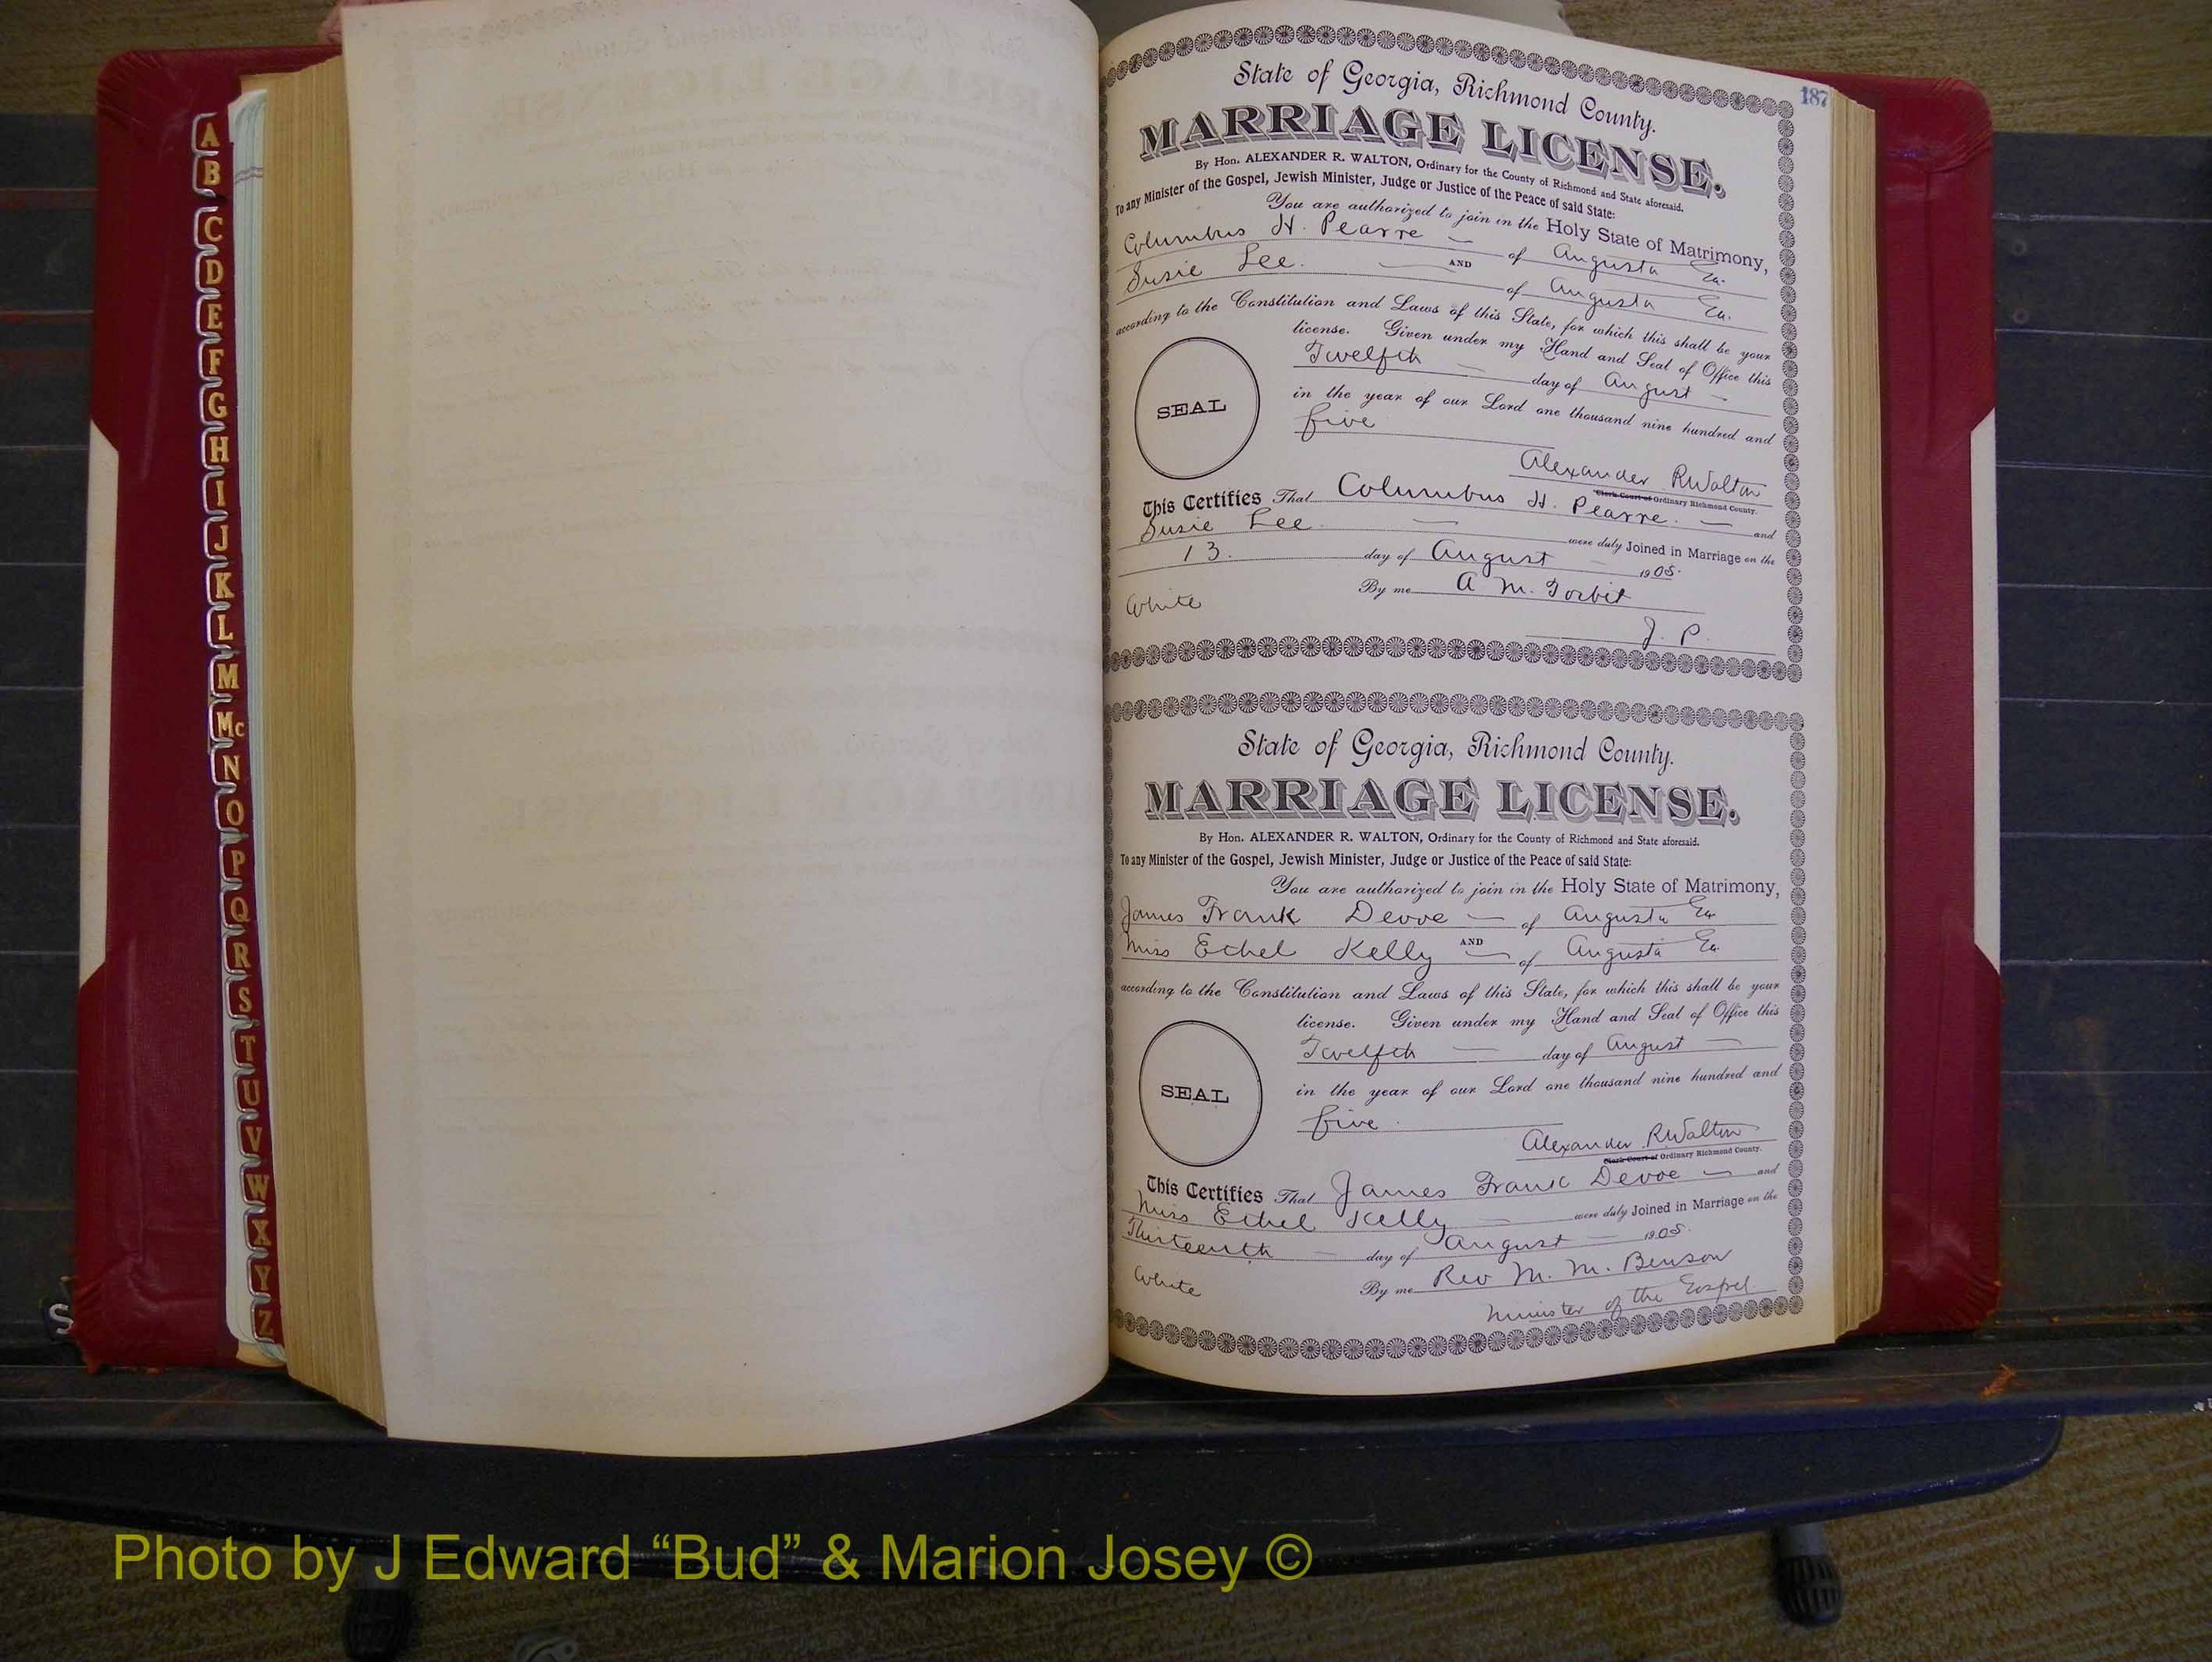 A
B
C
D
E
F
G
H
I
J
K
L
M
Mc
N
O
P
Q
R
S
T
U
V
W
X
Y
Z
187
State of Georgia, Richmond County.
MARRIAGE LICENSE.
By Hon. ALEXANDER R. WALTON, Ordinary for the County of Richmond and State aforesaid.
To any Minister of the Gospel, Jewish Minister, Judge or Justice of the Peace of said State:
You are authorized to join in the Holy State of Matrimony,
Columbus H. Pearre — of Augusta Ga.
AND
Susie Lee. — of Augusta Ga.
according to the Constitution and Laws of this State, for which this shall be your
license. Given under my Hand and Seal of Office this
Twelfth — day of August —
in the year of our Lord one thousand nine hundred and
five
SEAL
Alexander R Walton
Clerk Court of Ordinary Richmond County.
This Certifies That Columbus H. Pearre. — and
Susie Lee. — were duly Joined in Marriage on the
13. day of August — 1905.
White By me A M. Torbit
J. P.
State of Georgia, Richmond County.
MARRIAGE LICENSE.
By Hon. ALEXANDER R. WALTON, Ordinary for the County of Richmond and State aforesaid.
To any Minister of the Gospel, Jewish Minister, Judge or Justice of the Peace of said State:
You are authorized to join in the Holy State of Matrimony,
James Frank Devoe — of Augusta Ga
AND
Miss Ethel Kelly — of Augusta Ga.
according to the Constitution and Laws of this State, for which this shall be your
license. Given under my Hand and Seal of Office this
Twelfth — day of August —
in the year of our Lord one thousand nine hundred and
five.
SEAL
Alexander R Walton
Clerk Court of Ordinary Richmond County.
This Certifies That James Frank Devoe — and
Miss Ethel Kelly — were duly Joined in Marriage on the
Thirteenth — day of August — 1905.
White By me Rev M. M. Benson
Minister of the Gospel.
Photo by J Edward “Bud” & Marion Josey ©